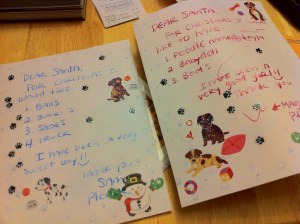 DEAR SANTA,
FOR CHRISTMAS I
would like:
1. BALLS
3. SHOES
4 TRUCK
I HAVE been a very
sweet boy!!
Thank you
DEAR SANTA,
FOR CHRISTMAS I
LIKE TO HAVE
1. POODLE
2. Babydoll
3. BOOTS
I have been a
very good girl!!
Thank you